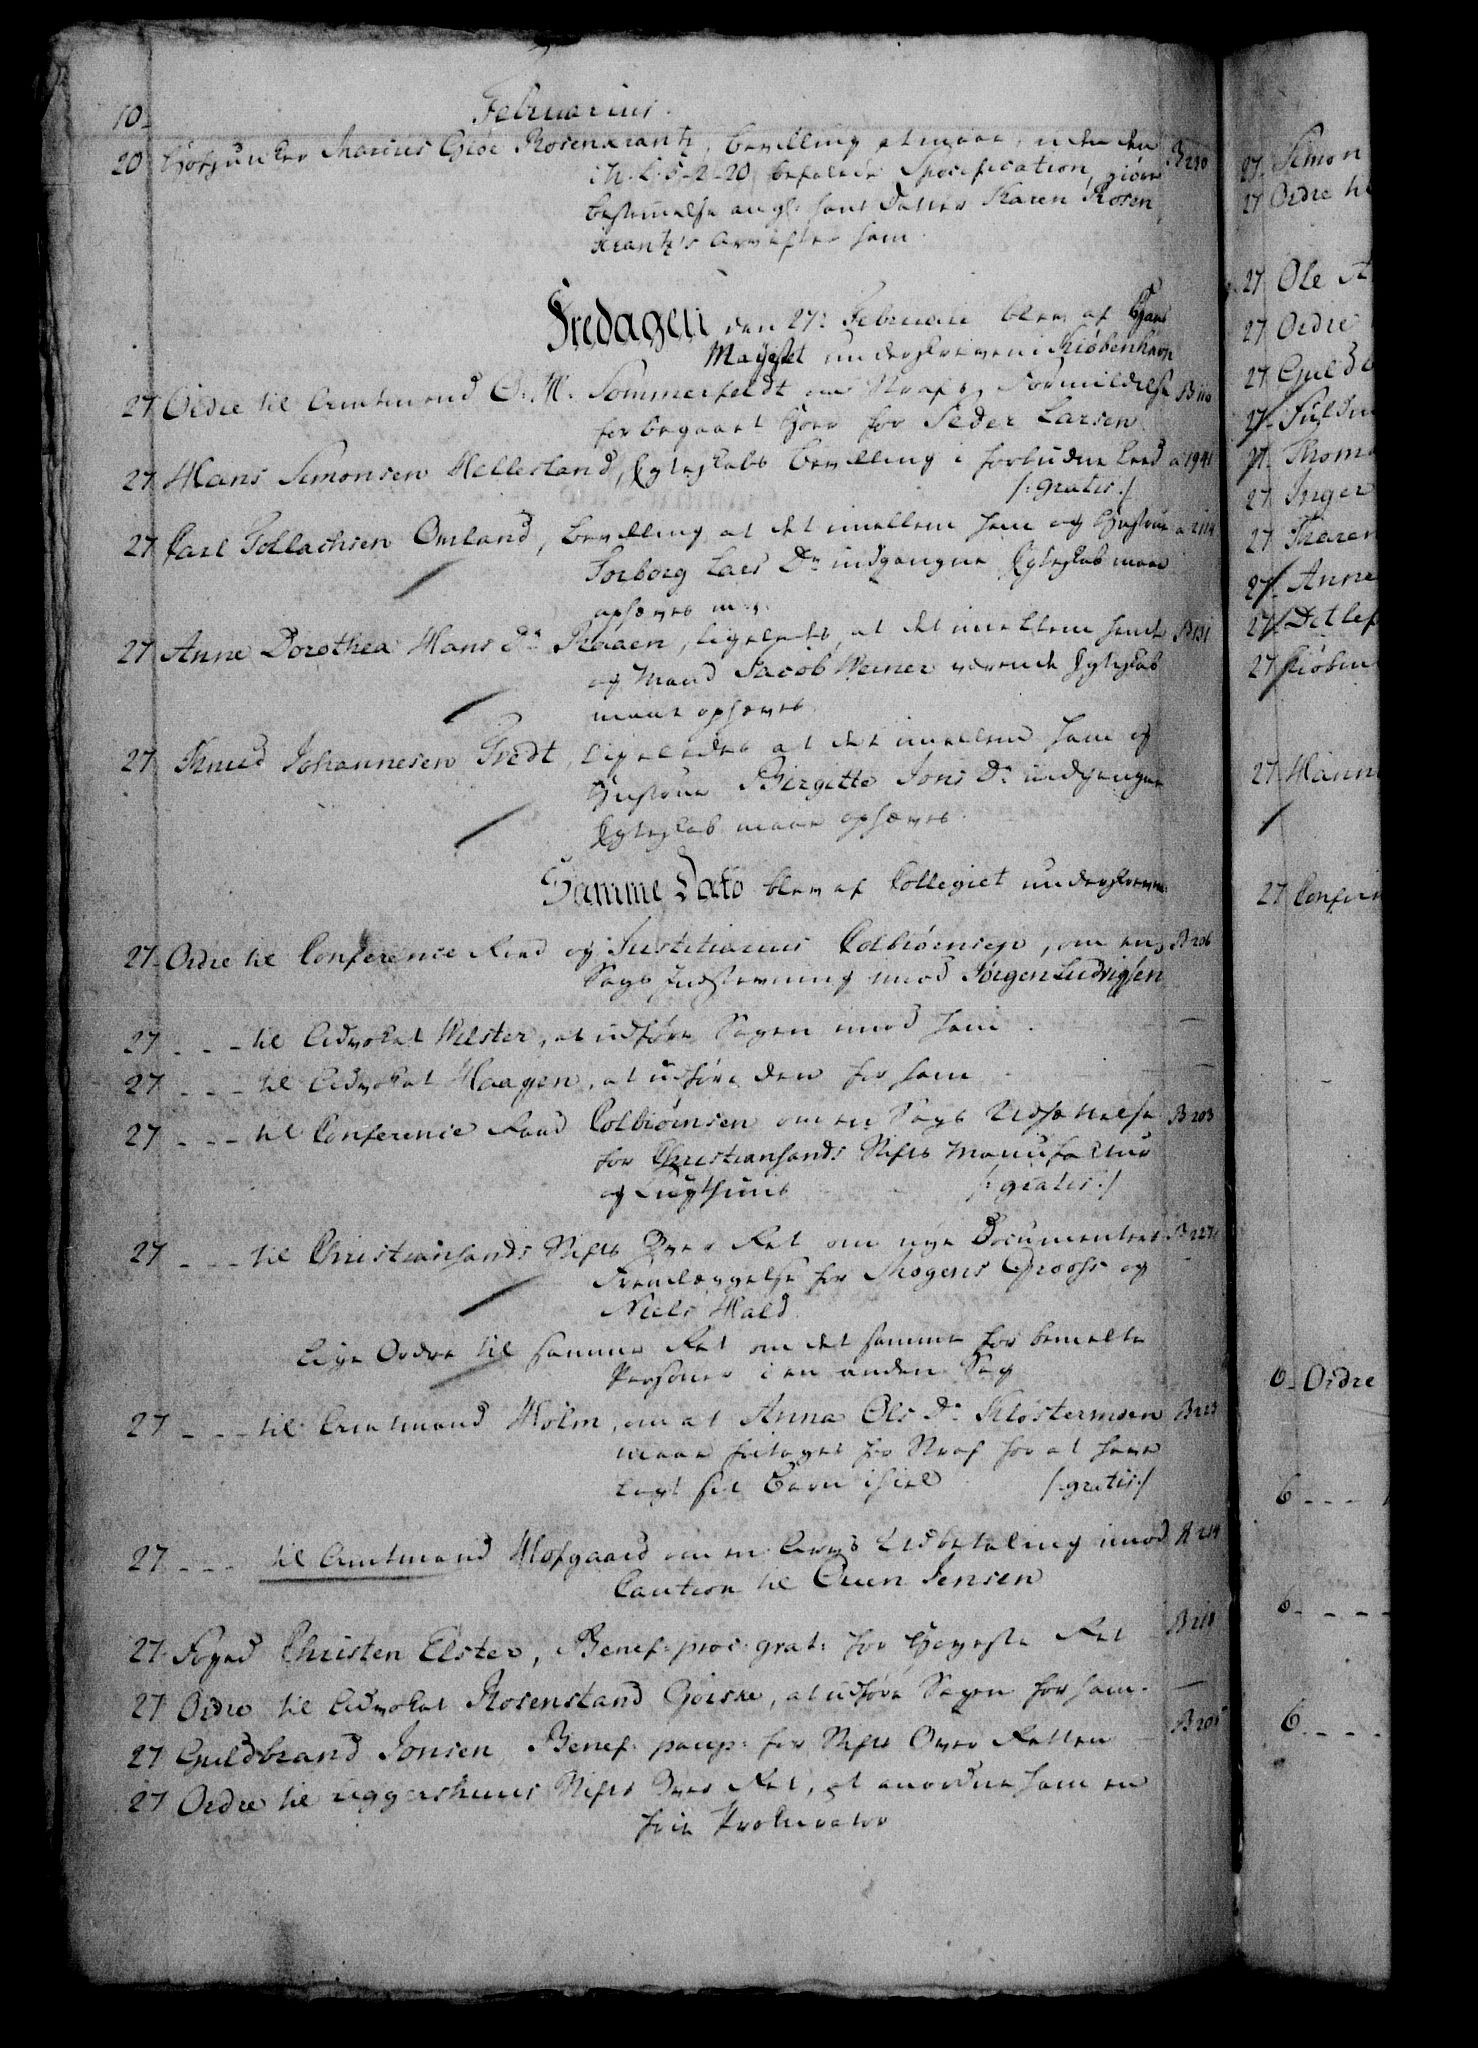 10.
Februarius.
20 Hofjunker Marius Giøe Rosenkrantz, bevilling at maae, uden den B 230
i N. L. 5-2-20 befalede Specification, giøre
bestemelse angl: hans Datter Karen Rosen
krantz's Arv efter ham.
Fredagen den 27: Februarii blev af Hans
Mayestet underskreven i Kiøbenhavn
27 Ordre til Amtmand O. W. Sommerfeldt om Straffs Formildelse B 110
for begaaet Hoer for Peder Larsen
27 Hans Simonsen Hellesland, Egteskabs bevilling i forbudne Leed a 1941
/: gratis :/
27 Carl Tollachsen Omland, bevilling at det imellem ham og Hustrue a 2114
Torborg Lars Dr. indgangne Egteskab maae
ophæves m. v.
27 Anne Dorothea Hans Dr. Raaen, ligeledes, at det imellem hende B 131
og Mand Jacob Weiner værende Egteskab
maae ophæves.
27 Knud Johannesen Tvedt, ligeledes at det imellem ham og
Hustrue Birgette Jons Dr. indgangne
Egteskab maae ophæves.
Samme Dato blev af Collegiet underskreven
27 Ordre til Conference Raad og Justitiarius Colbiørnsen, om en B 206
Sags Indstevning imod Jørgen Ludvigsen
27 - - - til Advokat Wilster, at udføre Sagen imod ham. —
27 - - - til Advokat Haagen, at udføre den for ham - —
27 - - - til Conference Raad Colbiørnsen om en Sags Udsættelse B 203
for Christiansands Stifts Manufactur
og Tugthuus /: gratis :/
27 - - - til Christiansands Stifts Over Ret om nye Documenters B 227
Fremlæggelse for Mogens Grooss og
Niels Hald.
Lige Ordre til samme Ret om det samme for bemelte
Personer i en anden Sag
27 - - - til Amtmand Holm, om at Anna Ols Dr. Klostermoen B 223
maae fritages for Straf for at have
lagt sit Barn ihiel /: gratis :/
27 - - - til Amtmand Hofgaard om en Arvs Udbetaling imod B 214
Caution til Even Jensen
27 Foged Christen Elster, Benef: proc: grat: for Høyeste Ret B 218
27 Ordre til Advokat Rosenstand Goiske, at udføre Sagen for ham. —
27 Guldbrand Jonsen Benef: paup: for Stifts Over Retten - B 205
27 Ordre til Aggershuus Stifts Over Ret, at anordne ham en
frie Prokurator
27 Simon
27 Ordre til
27 Ole A
27 Ordre
27 Guldb
27
27 Thom
27 Inger
27 Karen
27 Anne
27 Detlef
27 Kiøbm
27 Hann
27 Confer
6 - Ordre
6 - - -
6 - - - -
6 - - - -